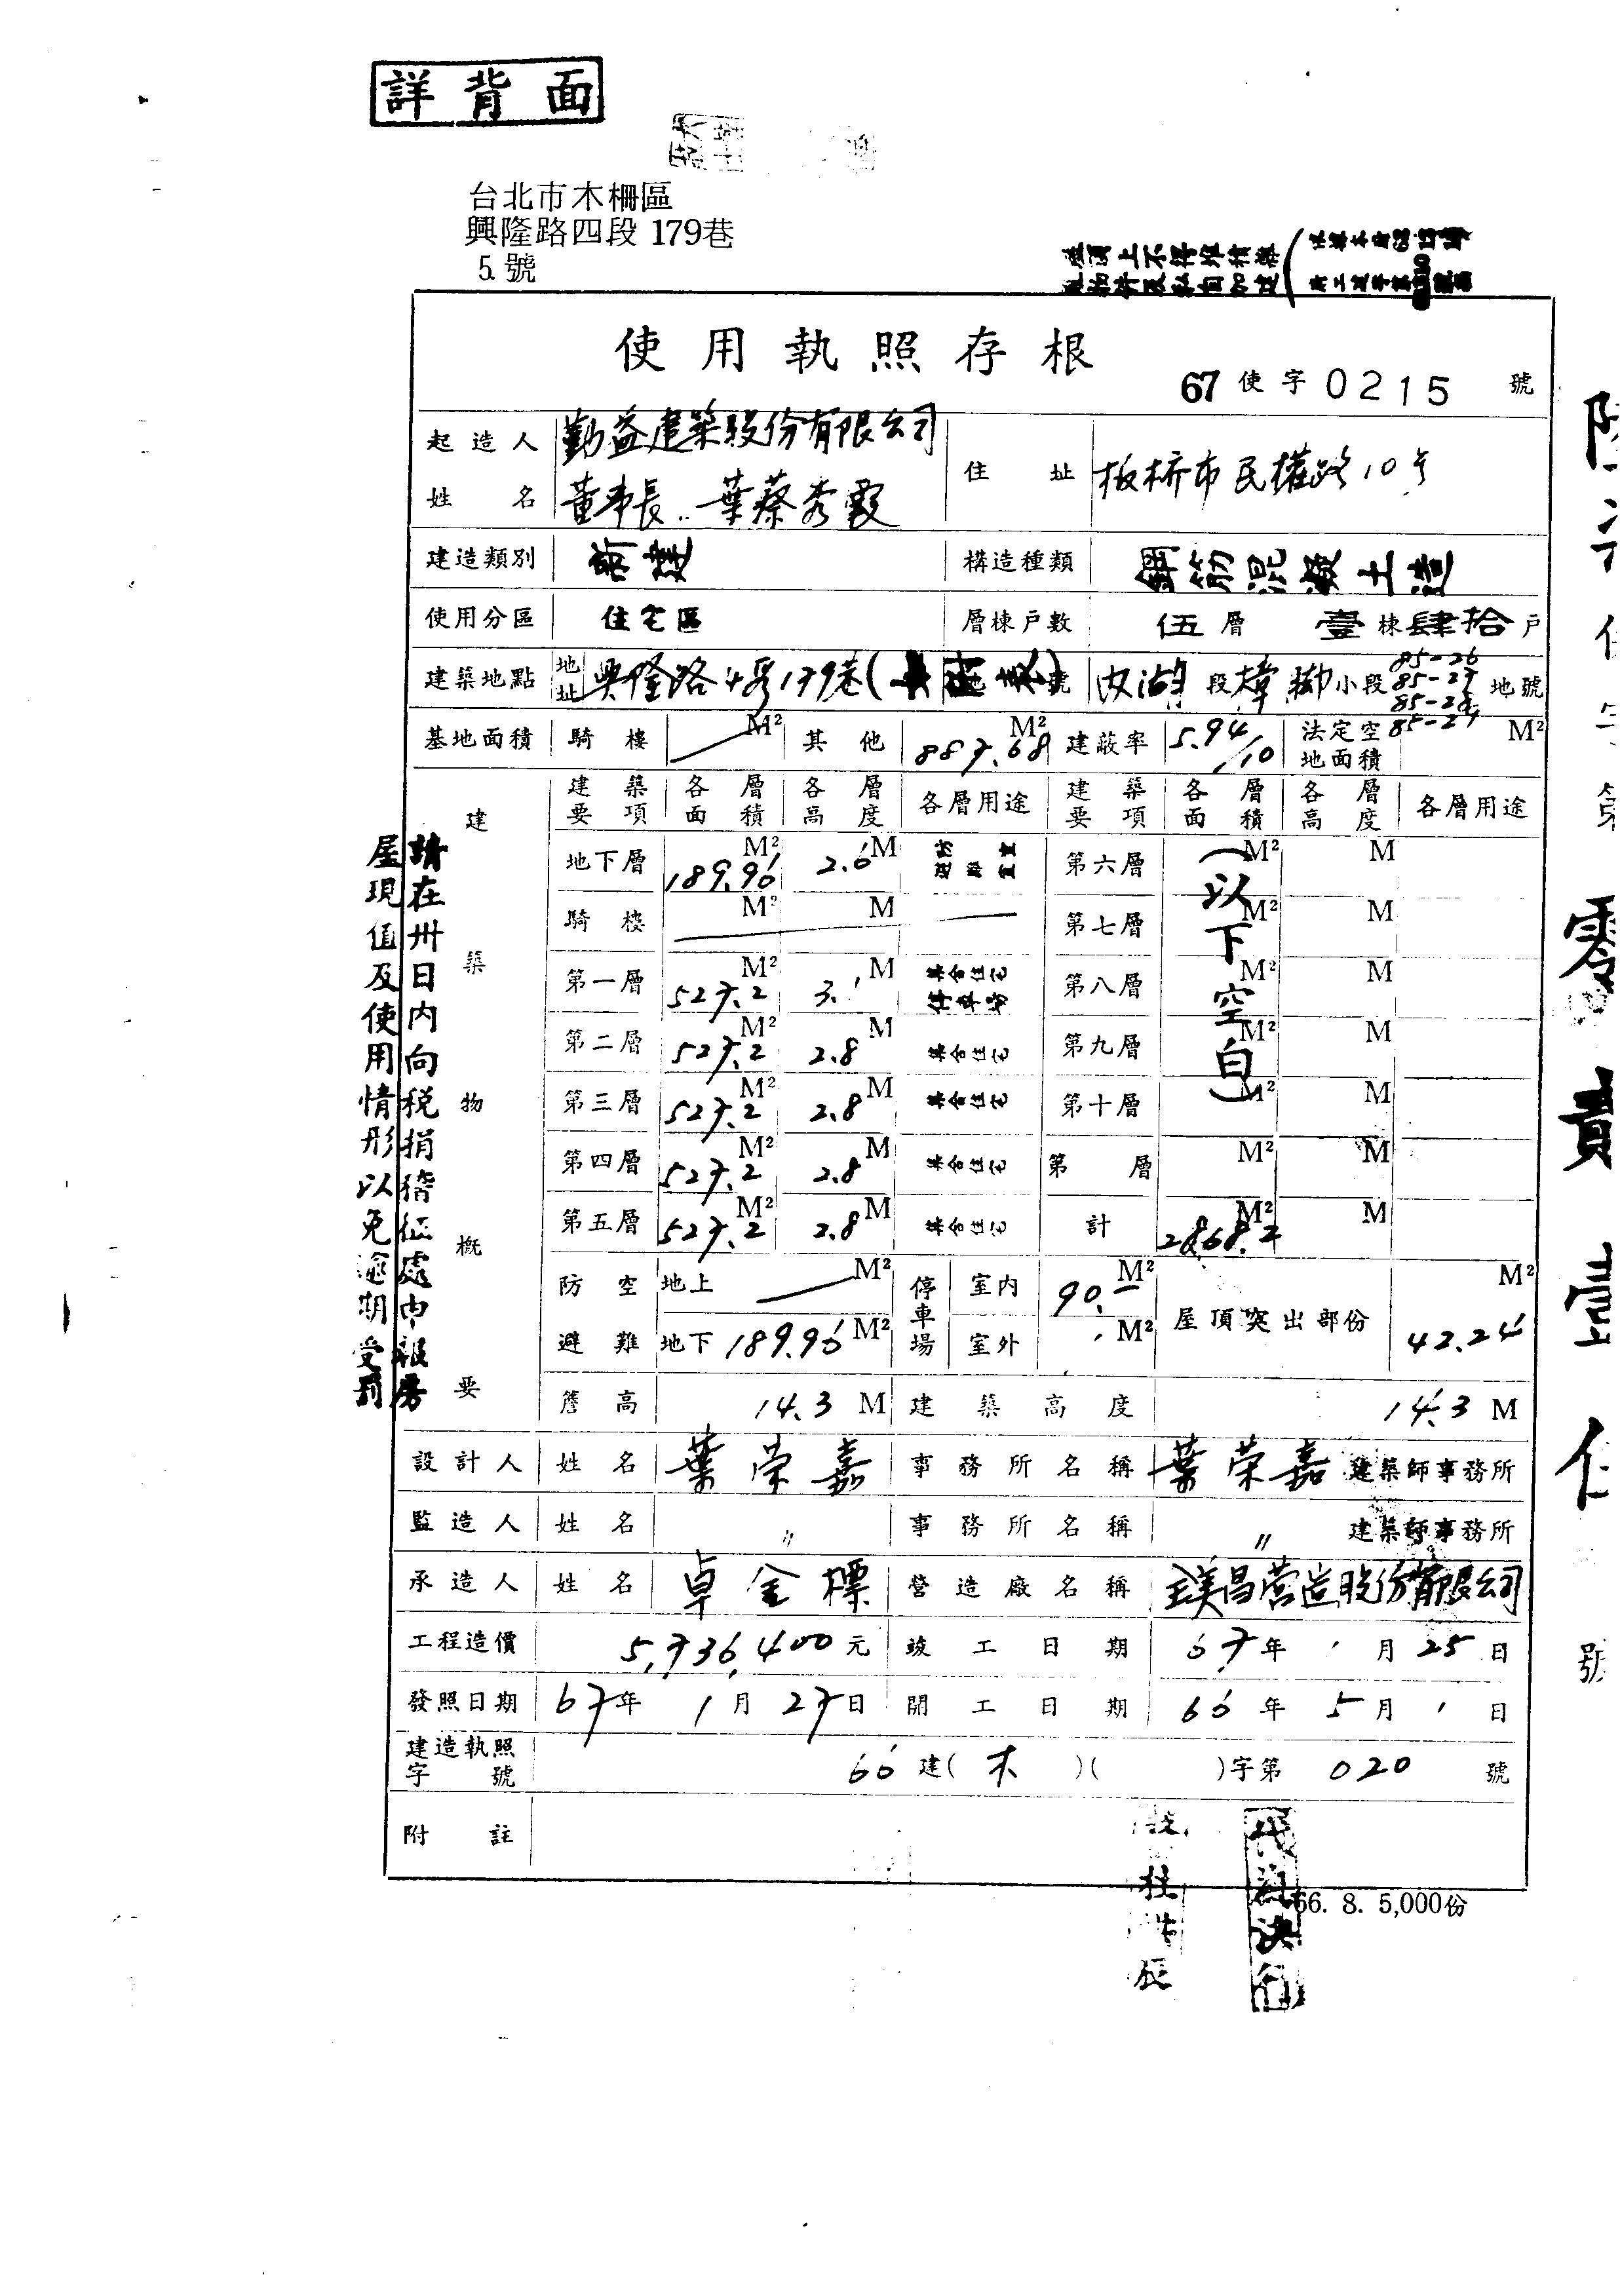 詳背面
台北市木柵區
興隆路四段 179巷
5. 號
屋頂上不得堆積雜
使用執照存根
67 使字 0215 號
起造人 勤益建築股份有限公司
姓名 董事長 葉蔡秀霞
住址 板桥市民權路10号
建造類別 新建 構造種類 鋼筋混凝土造
使用分區 住宅區 層棟戶數 伍層 壹棟肆拾戶
建築地點 地址 興隆路4段179巷( 號 內湖段樟腳小段 85-26 85-27 85-28 85-29 地號
基地面積 騎樓 M² 其他 887.68 M² 建蔽率 5.94/10 法定空地面積 M²
建築物概要
建築要項 各層面積 各層高度 各層用途 建築要項 各層面積 各層高度 各層用途
地下層 189.96 M² 2.6 M 第六層 M² M
騎樓 M² M 第七層 M² M
第一層 527.2 M² 3.1 M 集合住宅 停車場 第八層 M² M
第二層 527.2 M² 2.8 M 集合住宅 第九層 M² M
第三層 527.2 M² 2.8 M 集合住宅 第十層 M² M
第四層 527.2 M² 2.8 M 集合住宅 第 層 M² M
第五層 527.2 M² 2.8 M 集合住宅 計 2868.2 M² M
(以下空白)
防空避難 地上 M² 地下 189.96 M² 停車場 室內 90.- M² 室外 M² 屋頂突出部份 42.24 M²
簷高 14.3 M 建築高度 14.3 M
設計人 姓名 葉荣嘉 事務所名稱 葉荣嘉建築師事務所
監造人 姓名 〃 事務所名稱 〃 建築師事務所
承造人 姓名 卓金標 營造廠名稱 璞昌营造股份有限公司
工程造價 5,736,400元 竣工日期 67年1月25日
發照日期 67年1月27日 開工日期 66年5月1日
建造執照字號 66建(木)( )字第 020 號
附註
66. 8. 5,000份
請在卅日內向稅捐稽征處申報房
屋現值及使用情形以免逾期受罰
代為決行
零
責
壹
號